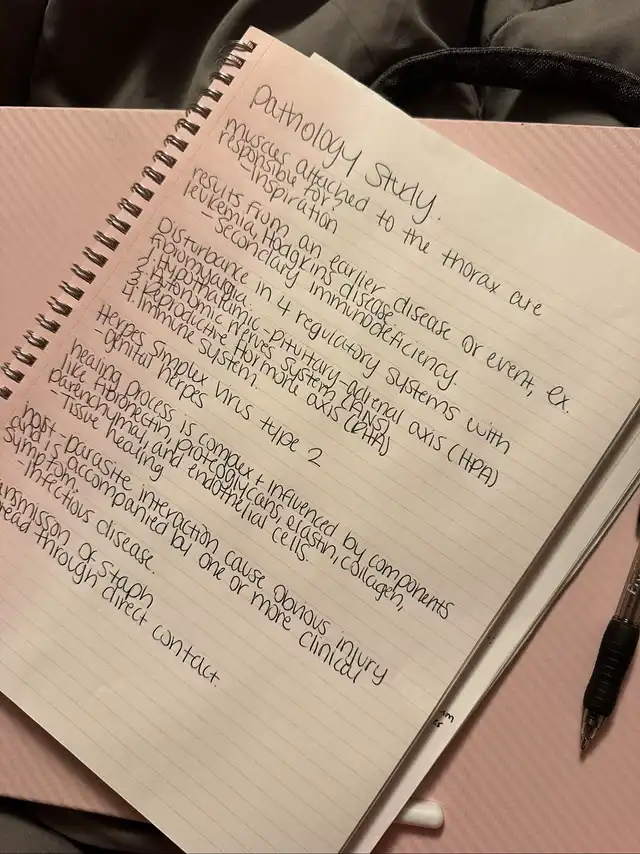 Pathology Study.
muscles attached to the thorax are
responsible for?
- Inspiration
results from an earlier disease or event, ex.
leukemia, Hodgkins disease.
- secondary immunodeficiency.
Disturbance in 4 regulatory systems with
fibromyalgia.
1. Hypothalamic-pituitary-adrenal axis (HPA)
2. Autonomic nerves system (ANS)
3. Reproductive Hormone axis
4. Immune system.
Herpes simplex virus type 2
- genital herpes
healing process is complex + influenced by components
like fibronectin, proteoglycans, elastin, collagen,
parenchymal, and endothelial cells.
- Tissue healing
host-parasite interaction cause obvious injury
and is accompanied by one or more clinical
symptom.
- Infectious disease.
ansmission of Staph
read through direct contact.